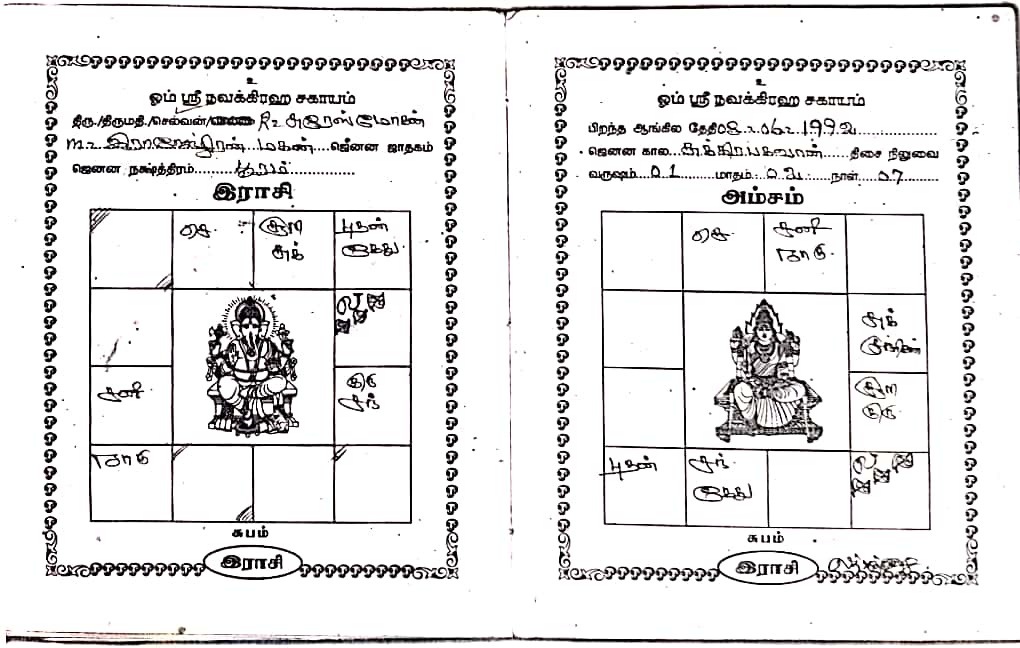 உ
ஓம் ஸ்ரீ நவக்கிரஹ சகாயம்
திரு./திருமதி./செல்வன்/
மகன் ஜெனன ஜாதகம்
ஜெனன நக்ஷத்திரம் பூரம்
இராசி
செ சூரி புதன்
சுக் கேது
ல
சனி குரு
சந்
ராகு
சுபம்
இராசி
உ
ஓம் ஸ்ரீ நவக்கிரஹ சகாயம்
பிறந்த ஆங்கில தேதி 08.06.1992
ஜெனன கால சுக்கிரபகவான் திசை நிலுவை
வருஷம் 01 மாதம் நாள் 07
அம்சம்
செ சனி
ராகு
சுக்
சூரி
குரு
புதன் சந் ல
கேது
சுபம்
இராசி